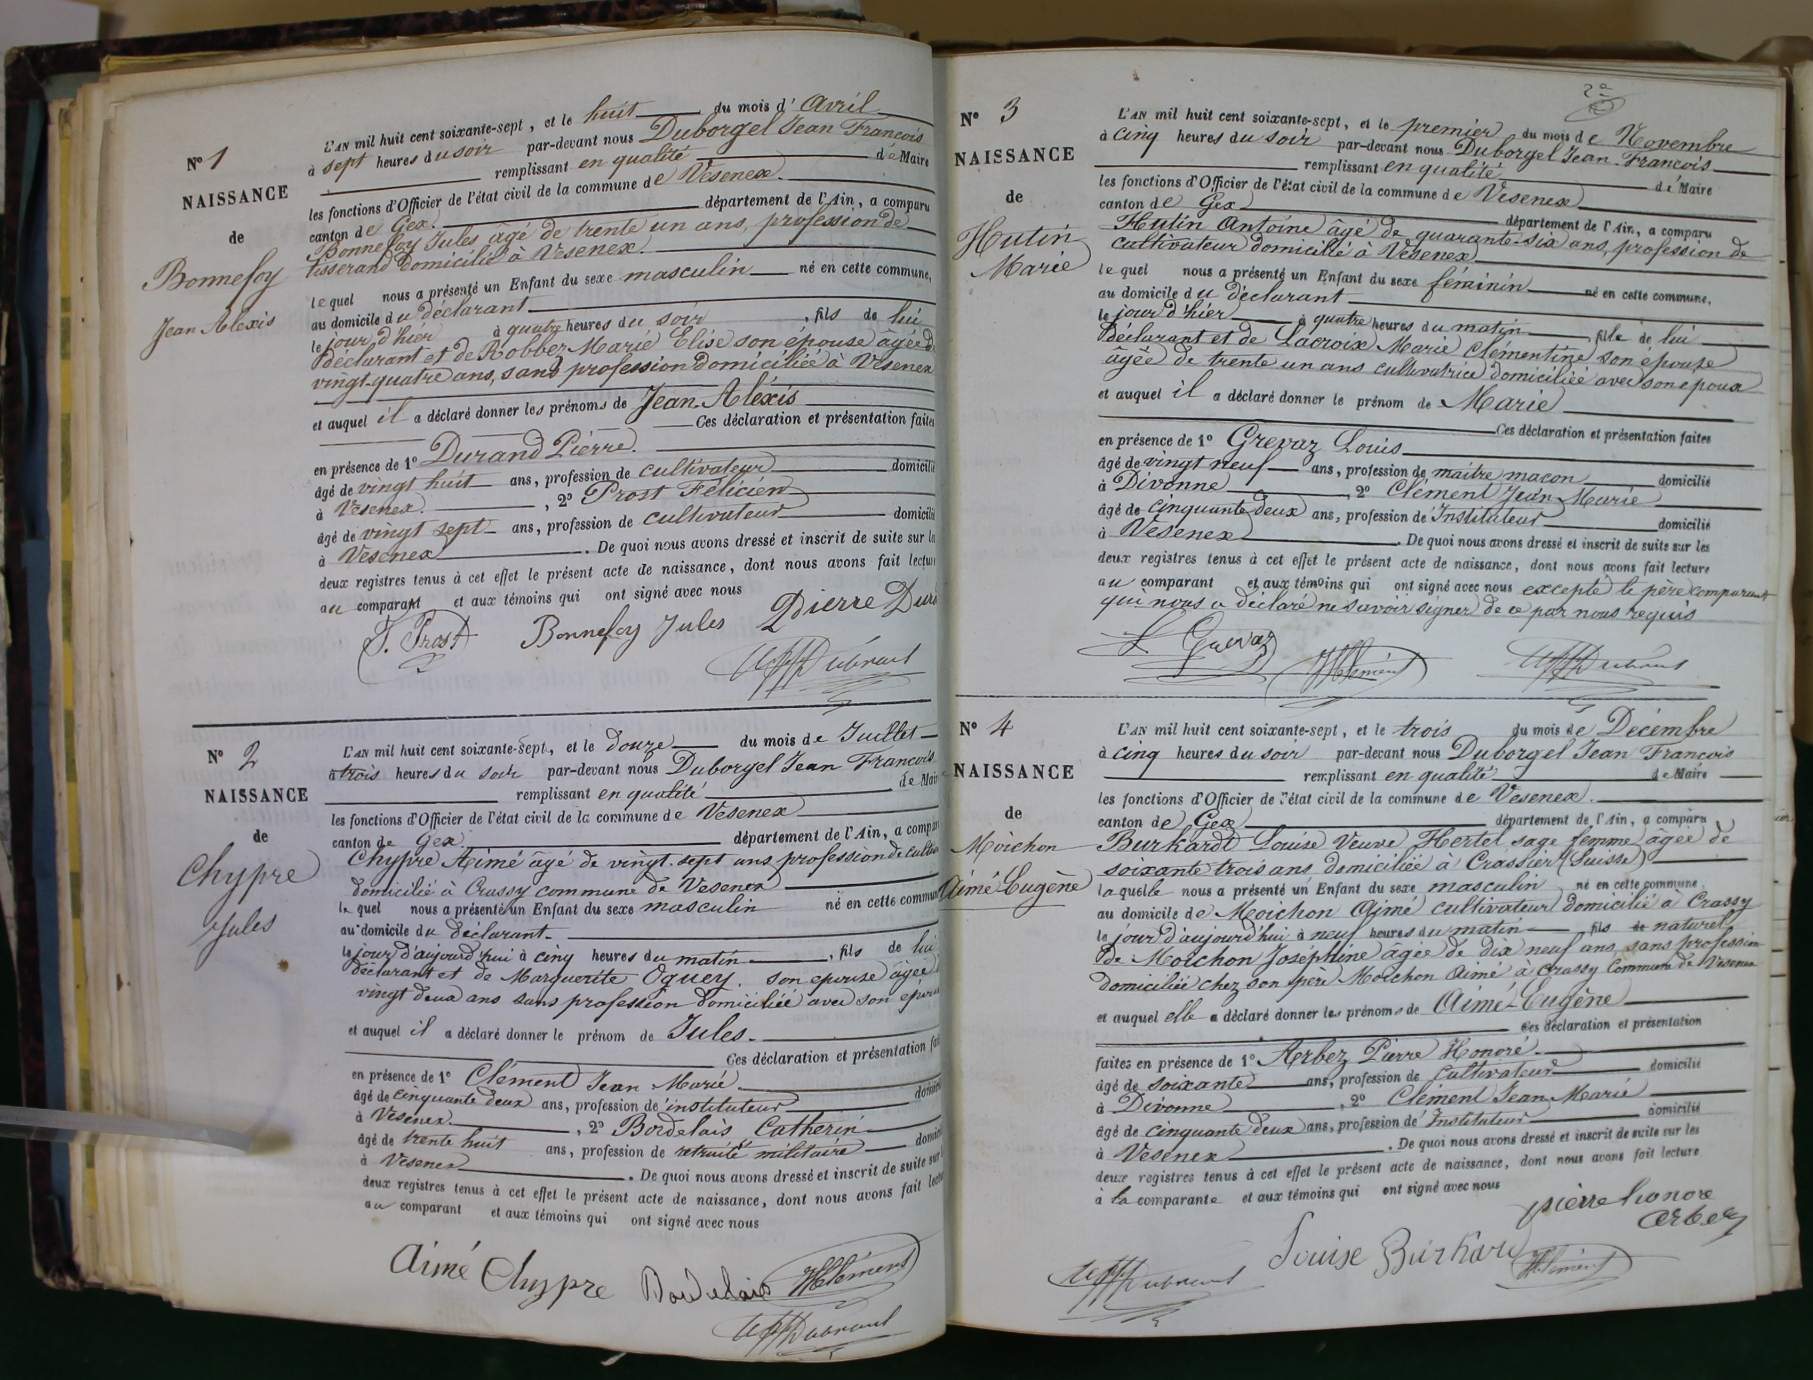 N° 1
NAISSANCE
de
Bonnefoy
Jean Alexis
L'AN mil huit cent soixante-sept, et le huit du mois d'Avril
à sept heures du soir par-devant nous Duborgel Jean François
remplissant en qualité de Maire
les fonctions d'Officier de l'état civil de la commune de Vesenex.
canton de Gex. département de l'Ain, a comparu
Bonnefoy Jules âgé de trente un ans, profession de
tisserand domicilié à Vesenex.
lequel nous a présenté un Enfant du sexe masculin né en cette commune,
au domicile du déclarant
le jour d'hier à quatre heures du soir, fils de lui
déclarant et de Robbez Marie Elise son épouse âgée de
vingt-quatre ans, sans profession domiciliée à Vesenex
et auquel il a déclaré donner les prénoms de Jean-Aléxis
Ces déclaration et présentation faites
en présence de 1° Durand Pierre.
âgé de vingt huit ans, profession de cultivateur domicilié
à Vesenex. , 2° Prost Félicien
âgé de vingt sept ans, profession de cultivateur domicilié
à Vesenex . De quoi nous avons dressé et inscrit de suite sur les
deux registres tenus à cet effet le présent acte de naissance, dont nous avons fait lecture
au comparant et aux témoins qui ont signé avec nous
F. Prost Bonnefoy Jules Pierre Dura
N° 2
NAISSANCE
de
Chypre
Jules
L'AN mil huit cent soixante-sept, et le douze du mois de Juillet
à trois heures du soir par-devant nous Duborgel Jean François
remplissant en qualité de Mair
les fonctions d'Officier de l'état civil de la commune de Vesenex
canton de Gex département de l'Ain, a compar
Chypre Aimé âgé de vingt-sept ans profession de cultiv
domicilié à Crassy commune de Vesenex
lequel nous a présenté un Enfant du sexe masculin né en cette commun
au domicile du déclarant.
le jour d'aujourd'hui à cinq heures du matin, fils de lui
déclarant et de Marguerite Oguey. son épouse âgée d
vingt deux ans sans profession domiciliée avec son époux
et auquel il a déclaré donner le prénom de Jules.
Ces déclaration et présentation fai
en présence de 1° Clément Jean Marie
âgé de cinquante deux ans, profession d'instituteur domicil
à Vesenex. , 2° Bordelais Catherin
âgé de trente huit ans, profession de retraité militaire domici
à Vesenex . De quoi nous avons dressé et inscrit de suite sur l
deux registres tenus à cet effet le présent acte de naissance, dont nous avons fait lectu
au comparant et aux témoins qui ont signé avec nous
Aimé Chypre Bordelais JMClément
2e
N° 3
NAISSANCE
de
Hutin
Marie
L'AN mil huit cent soixante-sept, et le premier du mois de Novembre
à cinq heures du soir par-devant nous Duborgel Jean François
remplissant en qualité de Maire
les fonctions d'Officier de l'état civil de la commune de Vesenex
canton de Gex département de l'Ain, a comparu
Hutin Antoine âgé de quarante-six ans, profession de
cultivateur domicilié à Vesenex
lequel nous a présenté un Enfant du sexe féminin né en cette commune,
au domicile du déclarant
le jour d'hier à quatre heures du matin, fille de lui
déclarant et de Lacroix Marie Clémentine son épouse
âgée de trente un ans cultivatrice domiciliée avec son époux
et auquel il a déclaré donner le prénom de Marie
Ces déclaration et présentation faites
en présence de 1° Grevaz Louis
âgé de vingt neuf ans, profession de maitre maçon domicilié
à Divonne , 2° Clément Jean Marie
âgé de cinquante deux ans, profession d'Instituteur domicilié
à Vesenex . De quoi nous avons dressé et inscrit de suite sur les
deux registres tenus à cet effet le présent acte de naissance, dont nous avons fait lecture
au comparant et aux témoins qui ont signé avec nous excepté le père comparant
qui nous a déclaré ne savoir signer de ce par nous requis
L Grevaz JMClément
N° 4
NAISSANCE
de
Moichon
Aimé Eugène
L'AN mil huit cent soixante-sept, et le trois du mois de Décembre
à cinq heures du soir par-devant nous Duborgel Jean François
remplissant en qualité de Maire
les fonctions d'Officier de l'état civil de la commune de Vesenex.
canton de Gex département de l'Ain, a comparu
Burkardt Louise Veuve Hertel sage femme âgée de
soixante trois ans domiciliée à Crassier (Suisse)
laquelle nous a présenté un Enfant du sexe masculin né en cette commune
au domicile de Moichon Aimé cultivateur domicilié à Crassy
le jour d'aujourd'hui à neuf heures du matin fils de naturel
de Moichon Joséphine âgée de dix neuf ans, sans profession
domiciliée chez son père Moichon Aimé à Crassy Commune de Vesenex
et auquel elle a déclaré donner les prénoms de Aimé-Eugène
Ces déclaration et présentation
faites en présence de 1° Arbez Pierre Honoré.
âgé de soixante ans, profession de cultivateur domicilié
à Divonne , 2° Clément Jean Marie
âgé de cinquante deux ans, profession d'Instituteur domicilié
à Vesenex . De quoi nous avons dressé et inscrit de suite sur les
deux registres tenus à cet effet le présent acte de naissance, dont nous avons fait lecture
à la comparante et aux témoins qui ont signé avec nous
pierre honore
arbez
Louise Burkard JMClément